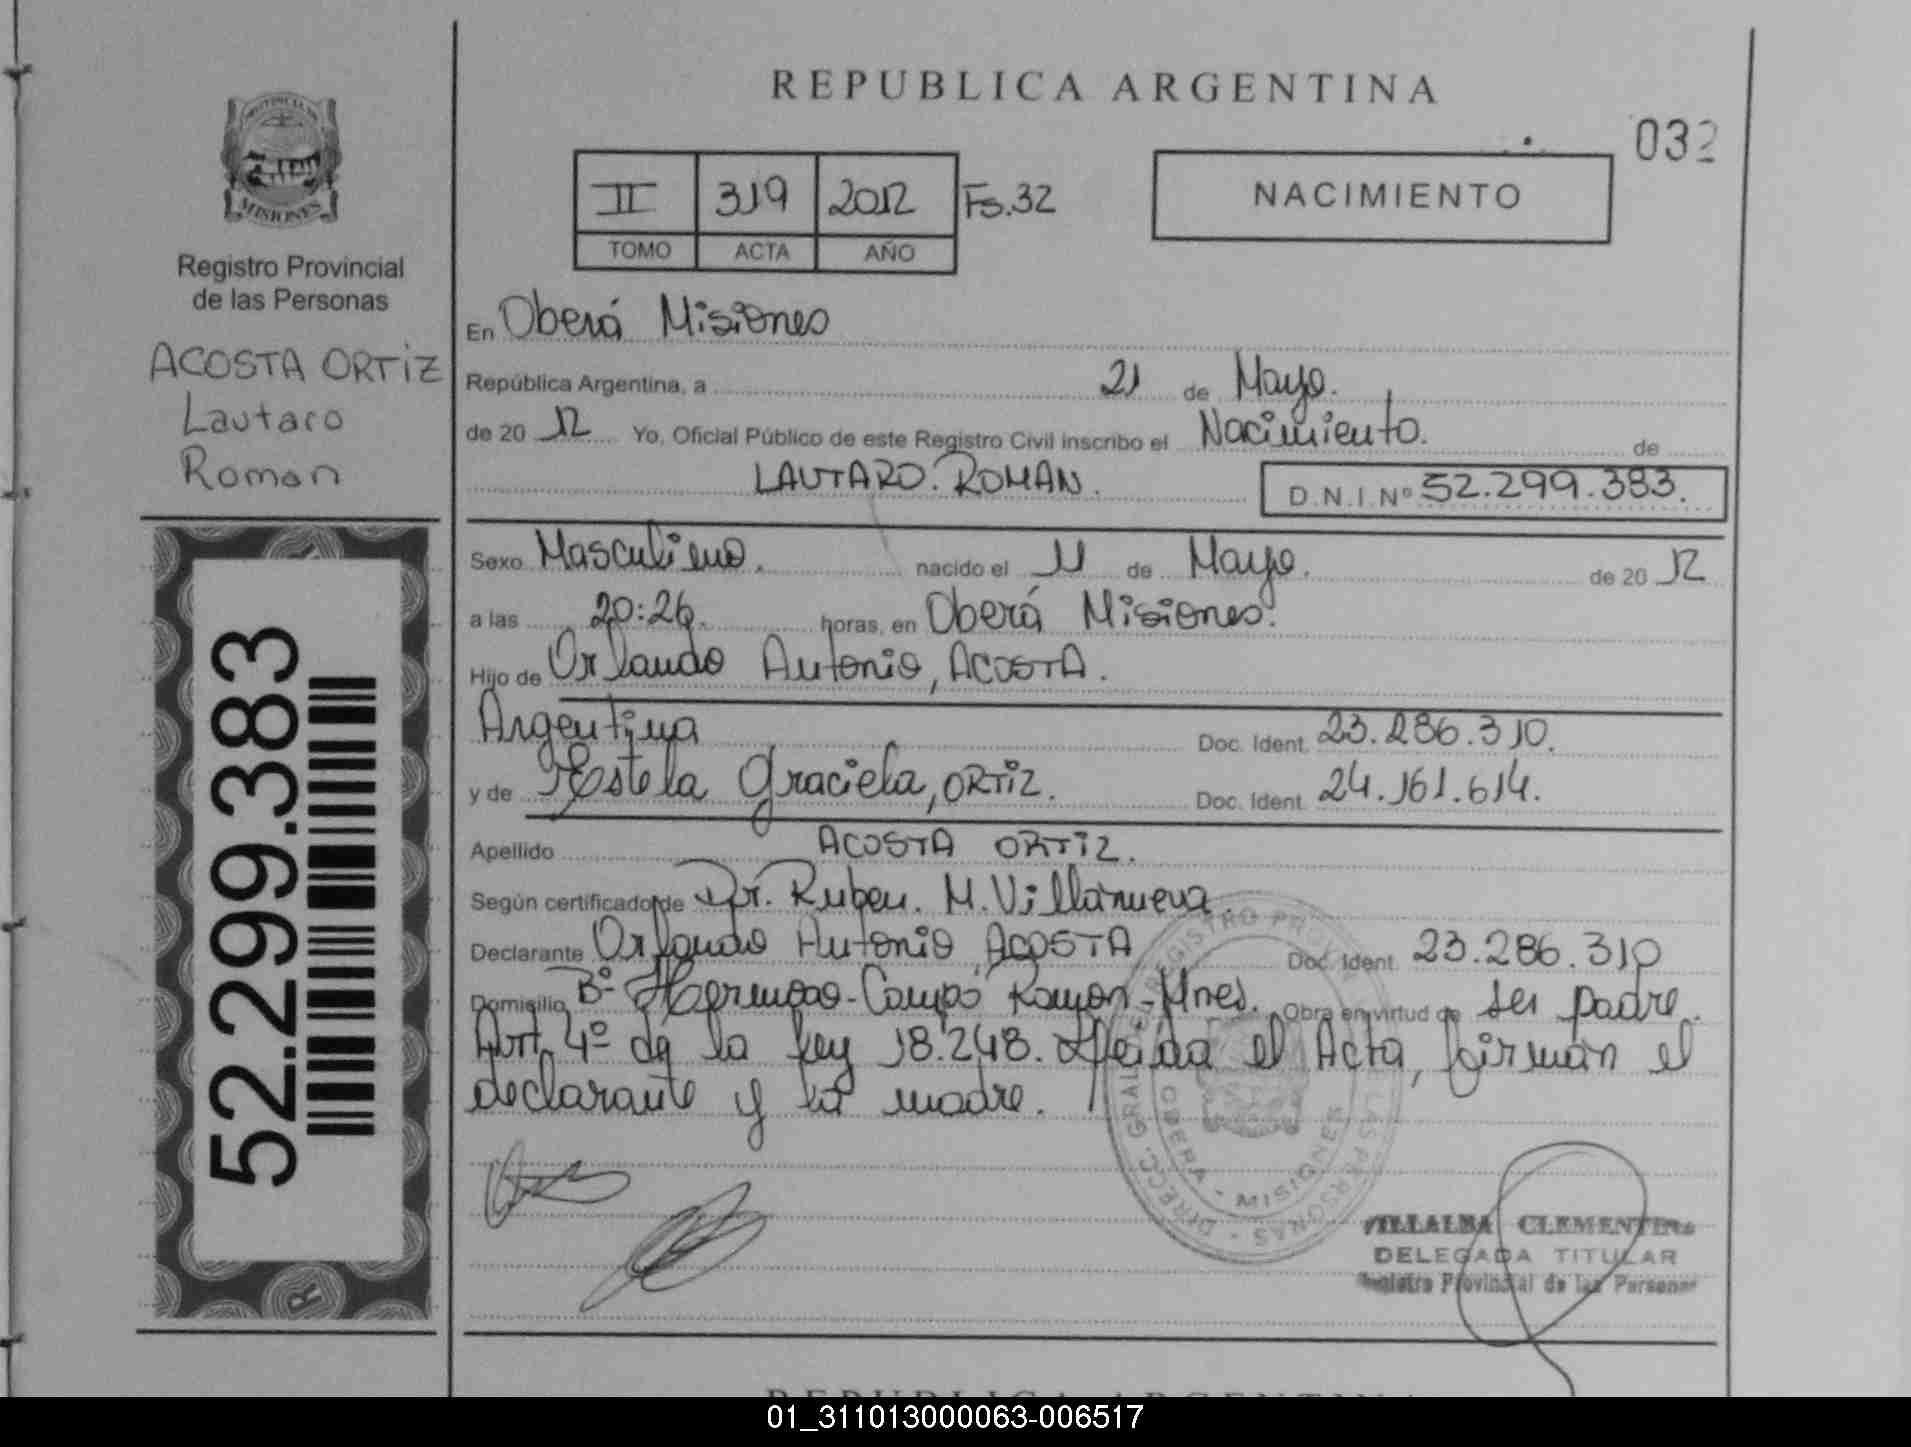 REPUBLICA ARGENTINA
032
PROVINCIA DE
MISIONES
Registro Provincial
de las Personas
ACOSTA ORTIZ
Lautaro
Roman
52.299.383
II 319 2012 Fs.32
TOMO ACTA AÑO
NACIMIENTO
En Oberá Misiones
República Argentina, a 21 de Mayo.
de 20 12 Yo, Oficial Público de este Registro Civil inscribo el Nacimiento. de
LAUTARO. ROMAN. D.N.I.Nº 52.299.383.
Sexo Masculino. nacido el 11 de Mayo. de 20 12
a las 20:26. horas, en Oberá Misiones.
Hijo de Orlando Antonio, ACOSTA.
Argentina Doc. Ident. 23.286.310.
y de Estela Graciela, ORTIZ. Doc. Ident. 24.161.614.
Apellido ACOSTA ORTIZ.
Según certificado de Dr. Ruben. M. Villanueva
Declarante Orlando Antonio, ACOSTA Doc. Ident. 23.286.310
Domisilio Bº Hermoso-Campo Ramon-Mnes. Obra en virtud de ser padre.
Art. 4º de la ley 18.248. Leida el Acta, firman el
declarante y la madre.
DIRECC. GRAL. DEL REGISTRO PROV. DE LAS PERSONAS
OBERA - MISIONES
VILLALBA CLEMENTINA
DELEGADA TITULAR
Registro Provincial de las Personas
REPUBLICA ARGENTINA
01_311013000063-006517